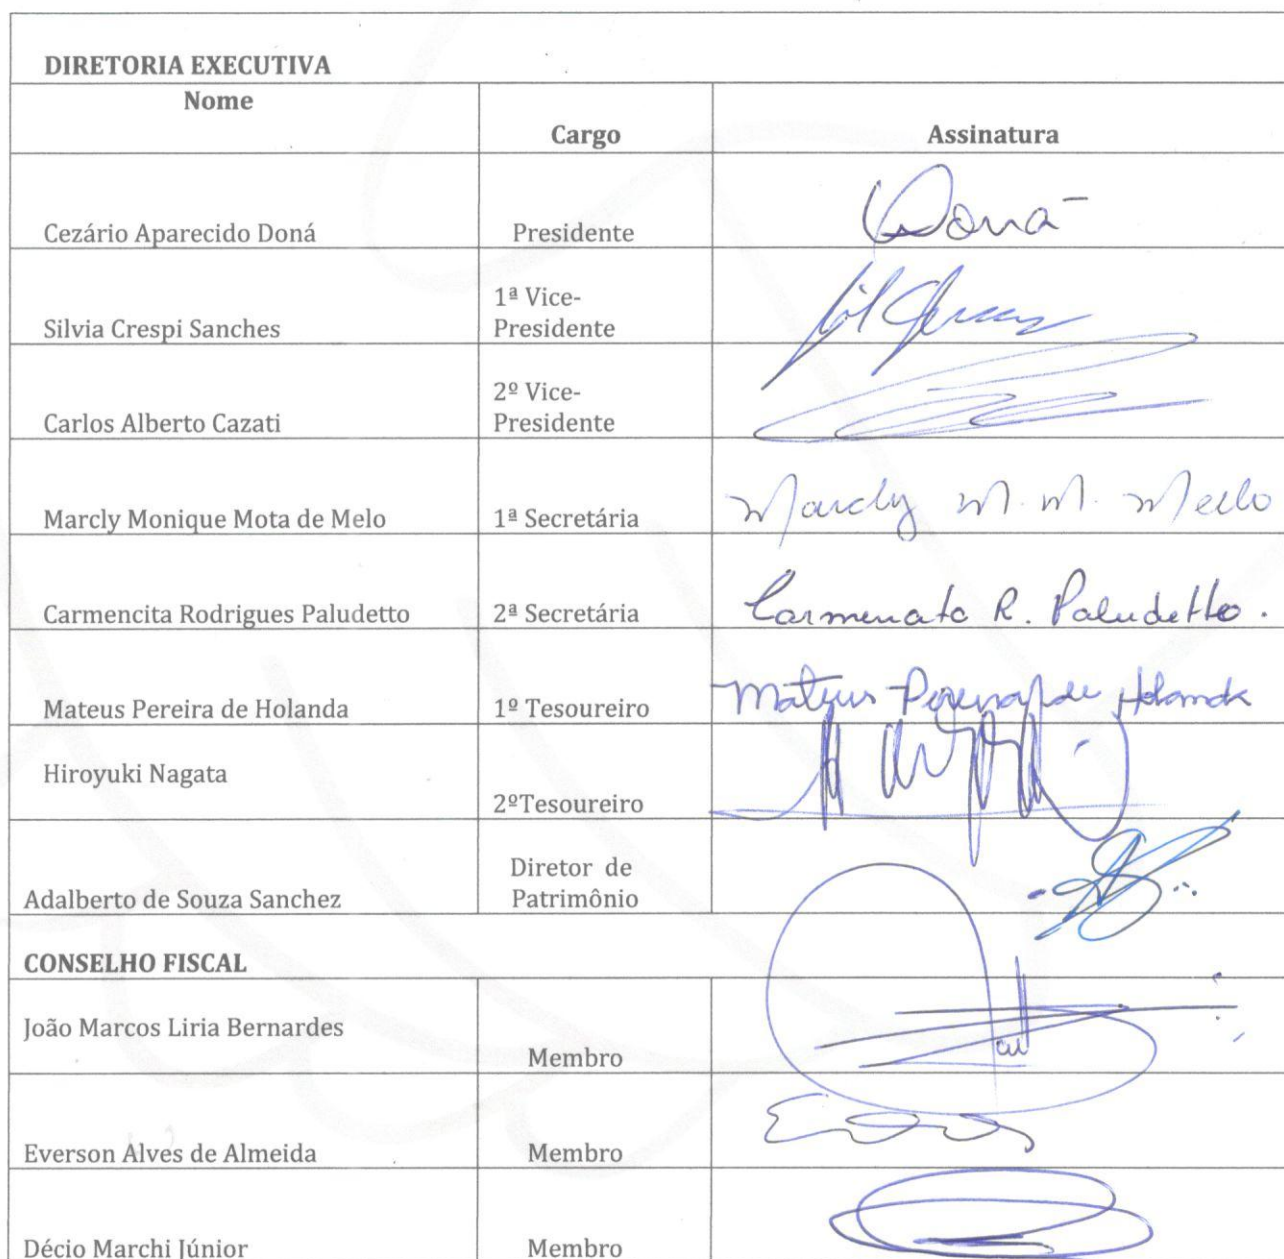 DIRETORIA EXECUTIVA
Nome Cargo Assinatura
Cezário Aparecido Doná Presidente Doná
Silvia Crespi Sanches 1ª Vice-
Presidente
Carlos Alberto Cazati 2º Vice-
Presidente
Marcly Monique Mota de Melo 1ª Secretária Marcly M. M. Mello
Carmencita Rodrigues Paludetto 2ª Secretária R. Paludetto.
Mateus Pereira de Holanda 1º Tesoureiro Mateus Pereira de Holanda
Hiroyuki Nagata
2ºTesoureiro
Adalberto de Souza Sanchez Diretor de
Patrimônio
CONSELHO FISCAL
João Marcos Liria Bernardes
Membro
Everson Alves de Almeida Membro
Décio Marchi Júnior Membro